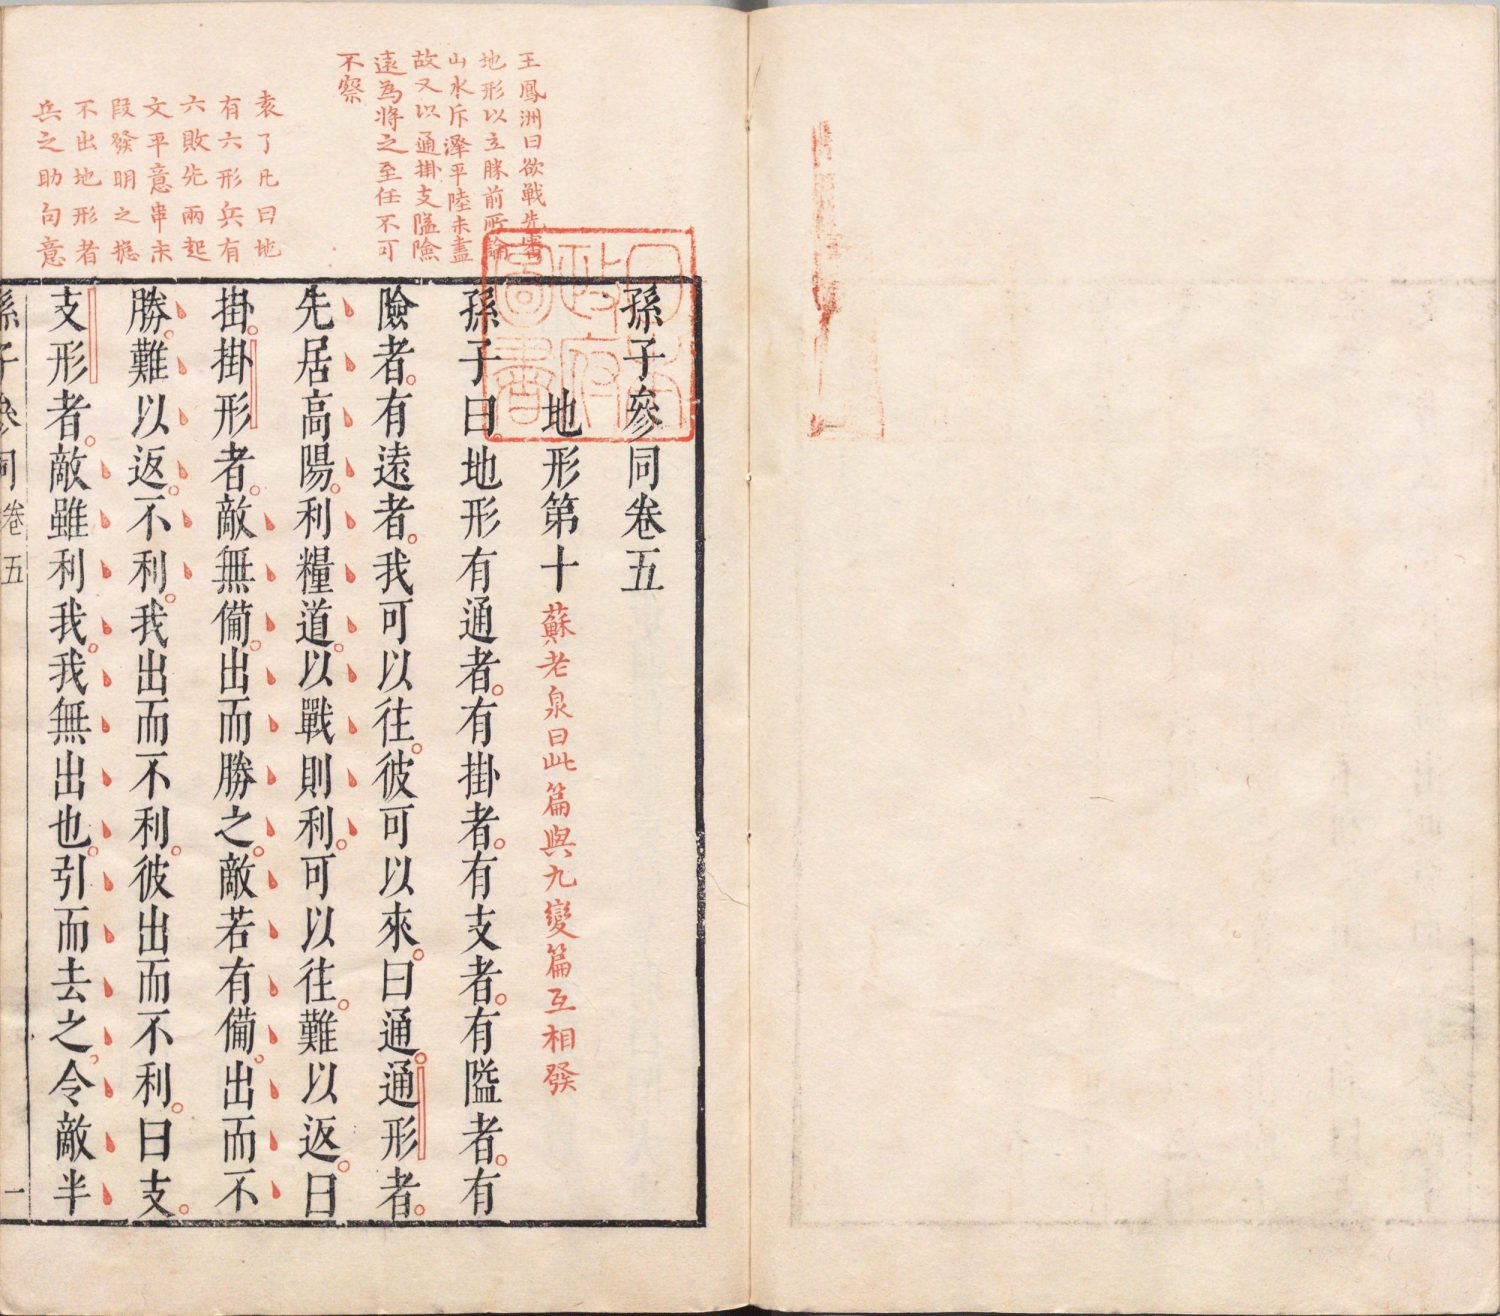 王鳳洲曰欲戰先審
地形以立勝前所論
山水斥澤平陸未盡
故又以通掛支隘險
遠為將之至任不可
不察
袁了凡曰地
有六形兵有
六敗先兩起
文平意串末
段發明之摠
不出地形者
兵之助句意
日本
政府
圖書
孫子參同卷五
地形第十
蘇老泉曰此篇與九變篇互相發
孫子曰地形有通者有掛者有支者有隘者有
險者有遠者我可以往彼可以來曰通通形者
先居高陽利糧道以戰則利可以往難以返曰
掛掛形者敵無備出而勝之敵若有備出而不
勝難以返不利我出而不利彼出而不利曰支
支形者敵雖利我我無出也引而去之令敵半
孫子參同卷五 一